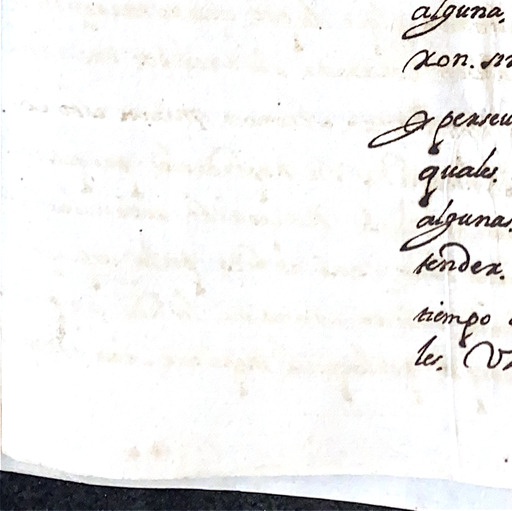 alguna,
xon. sn
perseu
quales.
algunas
tender.
tiempo
les. V